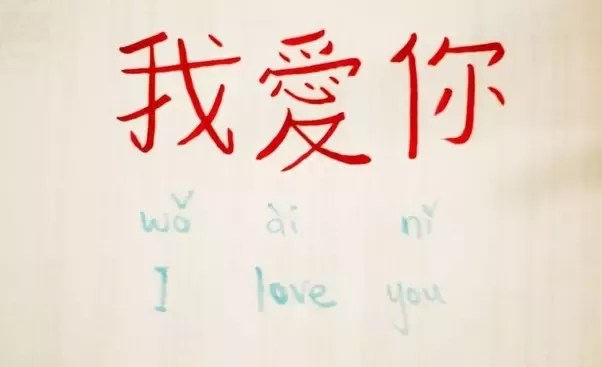 我愛你
wǒ ài nǐ
I love you